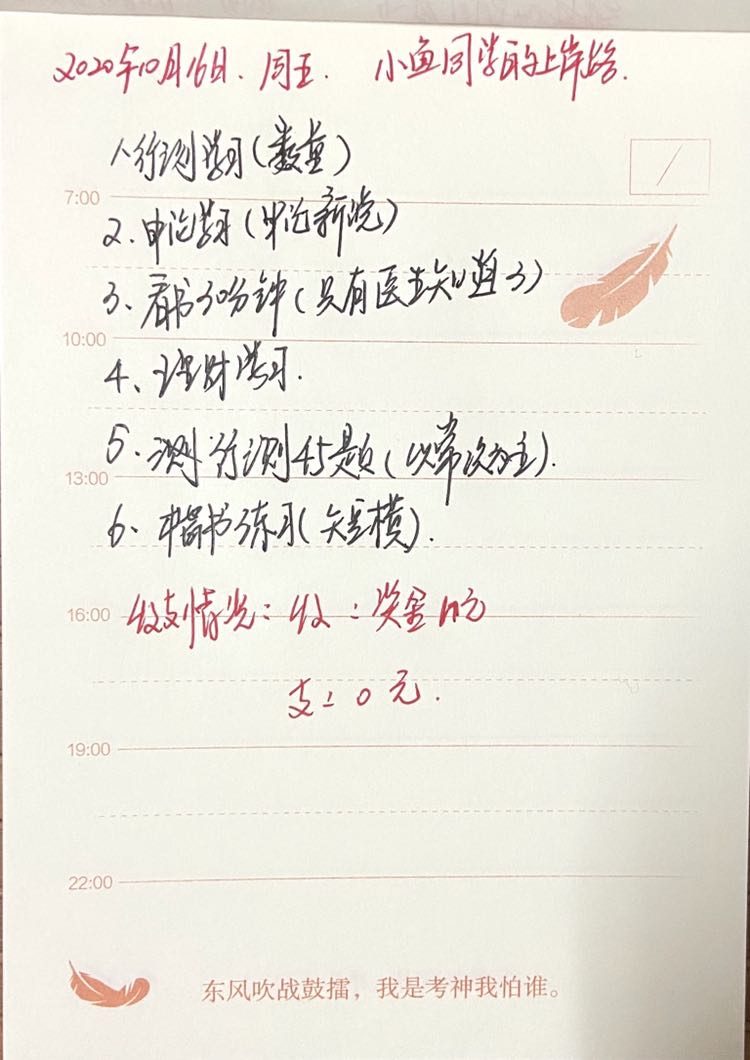 2020年10月16日. 周五. 小鱼同学的上岸路.
1、行测学习(数量)
7:00
2、申论学习(申论新说)
3、看书30分钟(只有医生知道3)
10:00
4、理财学习.
5、测行测45题(以常识为主).
13:00
6、楷书练习(短横).
16:00 收支情况: 收: 奖金11元
支: 0元.
19:00
22:00
东风吹战鼓擂，我是考神我怕谁。